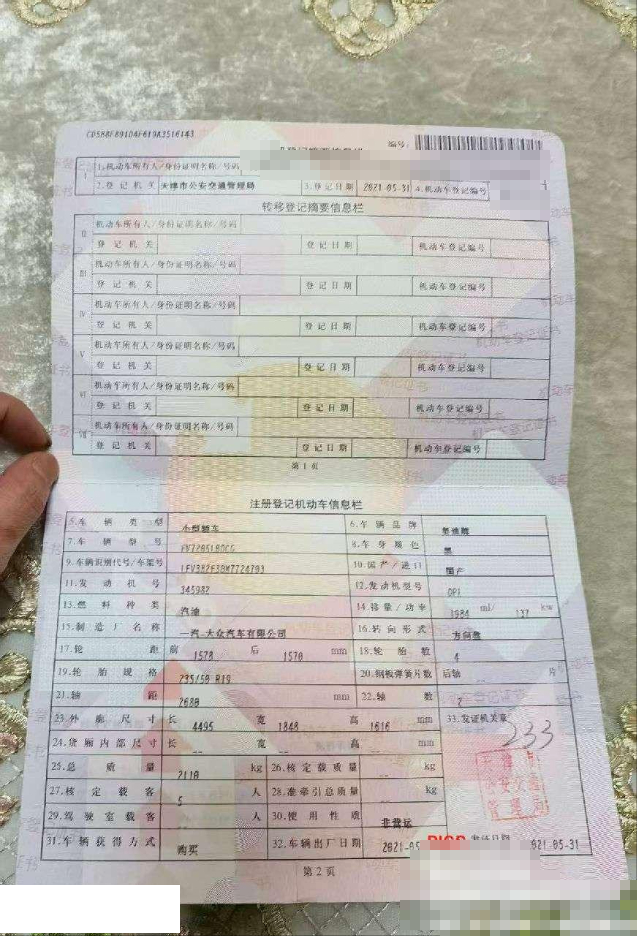 CD588F89104F619A3516143
编号:
1.机动车所有人/身份证明名称/号码
2.登记机关 天津市公安交通管理局 3.登记日期 2021-05-31 4.机动车登记编号
转移登记摘要信息栏
II 机动车所有人/身份证明名称/号码
登记机关 登记日期 机动车登记编号
III 机动车所有人/身份证明名称/号码
登记机关 登记日期 机动车登记编号
IV 机动车所有人/身份证明名称/号码
登记机关 登记日期 机动车登记编号
V 机动车所有人/身份证明名称/号码
登记机关 登记日期 机动车登记编号
VI 机动车所有人/身份证明名称/号码
登记机关 登记日期 机动车登记编号
VII 机动车所有人/身份证明名称/号码
登记机关 登记日期 机动车登记编号
第1页
注册登记机动车信息栏
5.车辆类型 小型轿车 6.车辆品牌
7.车辆型号 8.车身颜色 黑
9.车辆识别代号/车架号 10.国产/进口 国产
11.发动机号 345982 12.发动机型号
13.燃料种类 汽油 14.排量/功率 1984 ml/ 137 kw
15.制造厂名称 一汽-大众汽车有限公司 16.转向形式 方向盘
17.轮距 前 1578 后 1570 mm 18.轮胎数 4
19.轮胎规格 235/50 R19 20.钢板弹簧片数 后轴 -- 片
21.轴距 2680 mm 22.轴数 2
23.外廓尺寸 长 4495 宽 1848 高 1616 mm 33.发证机关章
24.货厢内部尺寸 长 -- 宽 -- 高 -- mm 233
25.总质量 2110 kg 26.核定载质量 -- kg
27.核定载客 5 人 28.准牵引总质量 -- kg
29.驾驶室载客 -- 人 30.使用性质 非营运
31.车辆获得方式 购买 32.车辆出厂日期 2021-05 发证日期 021-05-31
第2页